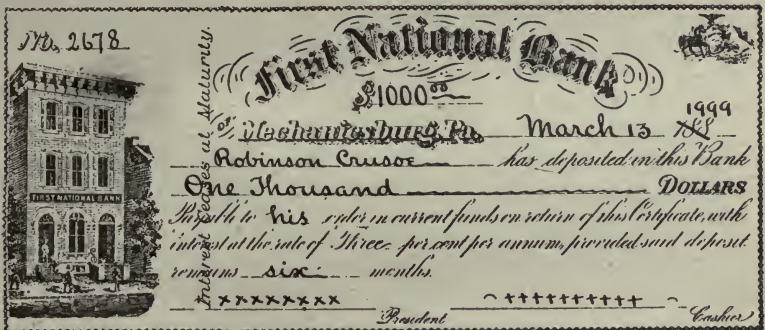 No. 2678
Interest Ceases at Maturity.
First National Bank
$1000.00
of Mechanicsburg, Pa. March 13 1999 188
Robinson Crusoe has deposited in this Bank
One Thousand DOLLARS
Payable to his order in current funds on return of this Certificate, with
interest at the rate of Three per cent per annum, provided said deposit
remains six months.
xxxxxxxx ++++++++++
President Cashier
FIRST NATIONAL BANK